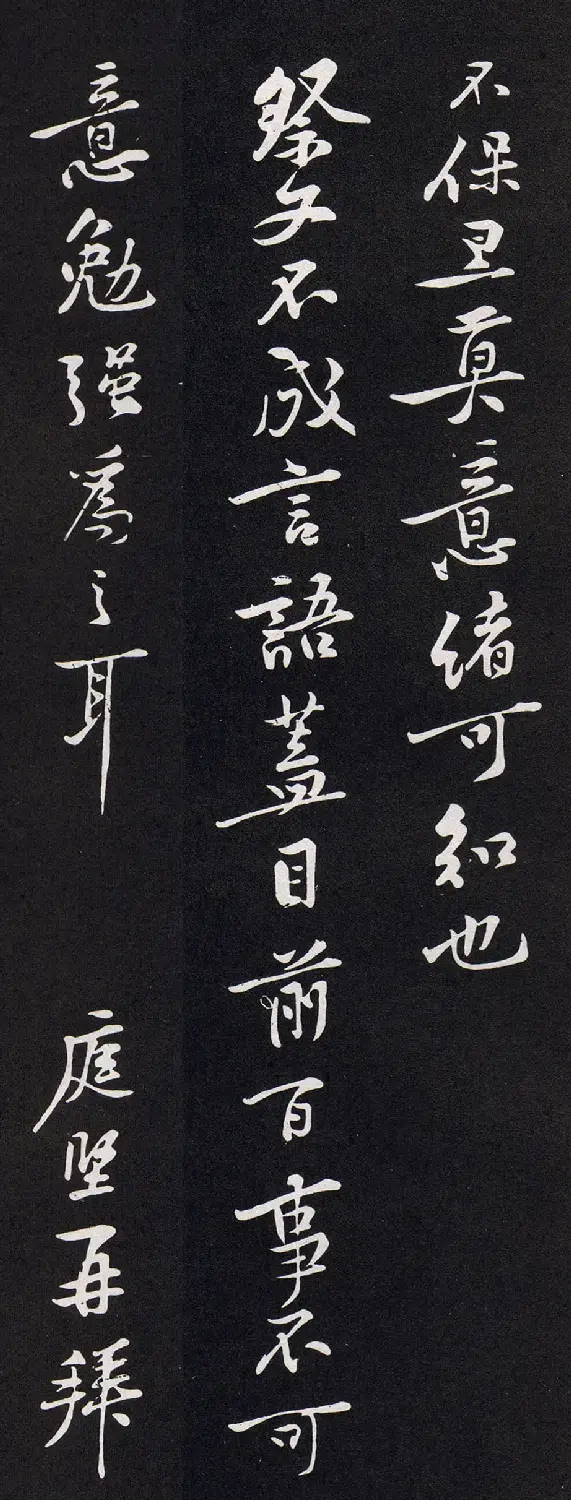 不保旦莫意緒可知也
祭文不成言語蓋目前百事不可
意勉强為之耳 庭堅再拜